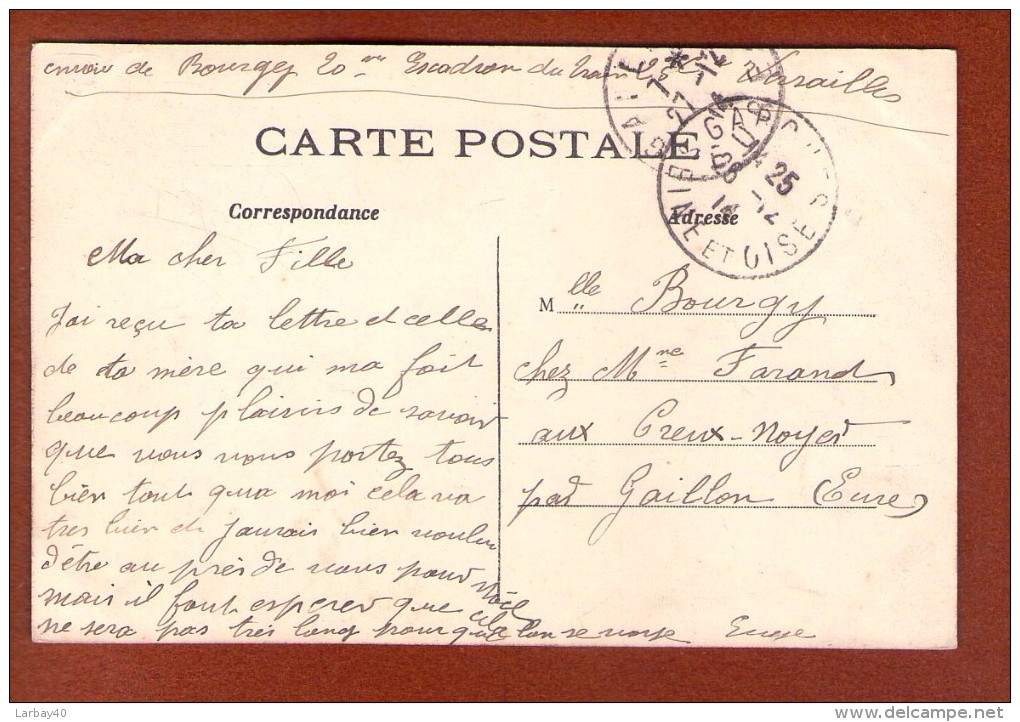 envoie de Bourgey 20me Escadron du train Versailles
CARTE POSTALE
Correspondance
Adresse
25 - 12
SEINE ET OISE
Ma cher Fille
J'ai reçu ta lettre et celle
de ta mère qui ma fait
beaucoup plaisirs de savoir
que vous vous portez tous
bien tout qua moi cela va
tres bien et jaurais bien voulu
d'être au près de vous pour Noël
mais il faut esperer que cela
ne sera pas très long pour que lon se voye
Mlle Bourgy
chez Mme Farand
aux Creux-Noyer
par Gaillon (Eure)
Larbay40
delcampe.net